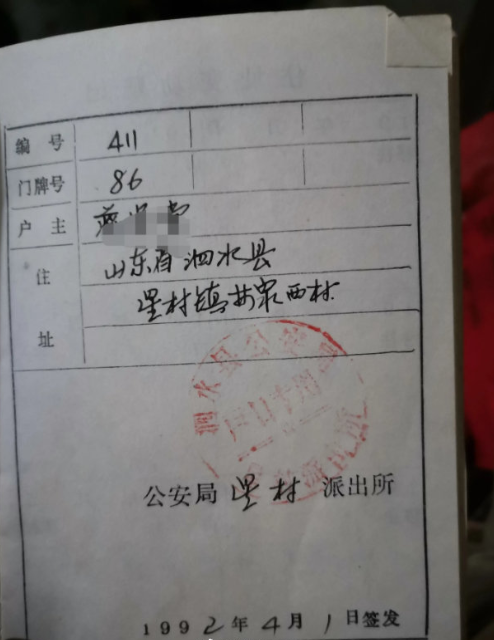 编号 411
门牌号 86
户主
住址 山东省泗水县
星村镇井泉西村
泗水县公安局
户口专用
公安局 星村 派出所
1992年4月1日签发